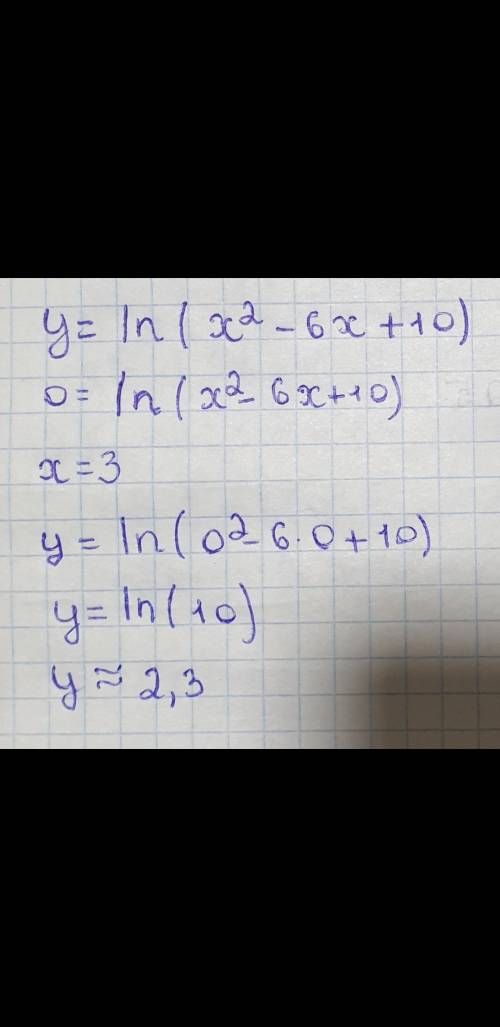 y = ln(x² - 6x + 10)
0 = ln(x² - 6x + 10)
x = 3
y = ln(0² - 6·0 + 10)
y = ln(10)
y ≈ 2,3